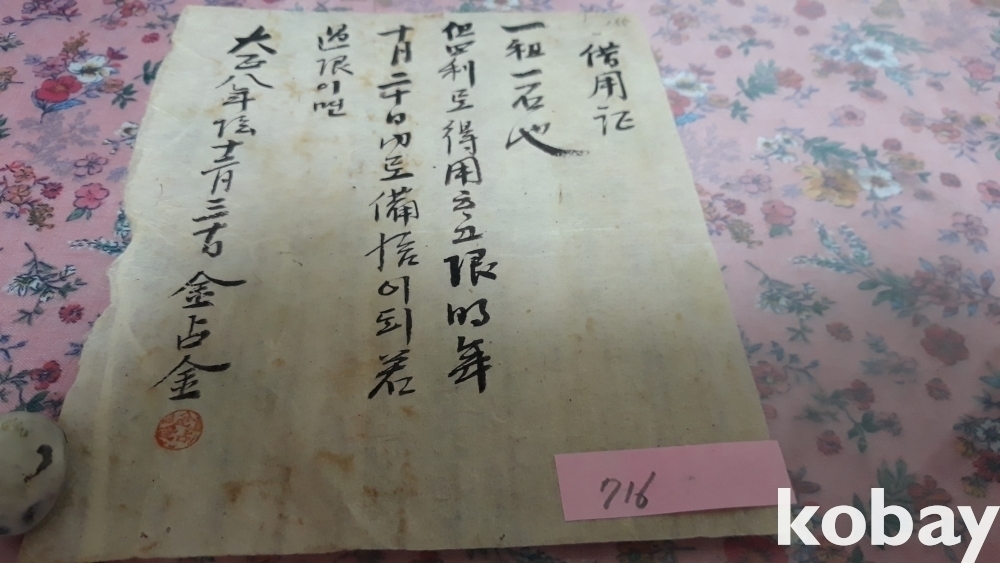 借用证
一租一石也
但四利로得用 限明年
十月二十日內로備給이되若
過限이면
大正八年陰十二月三十日 金占金
716
kobay